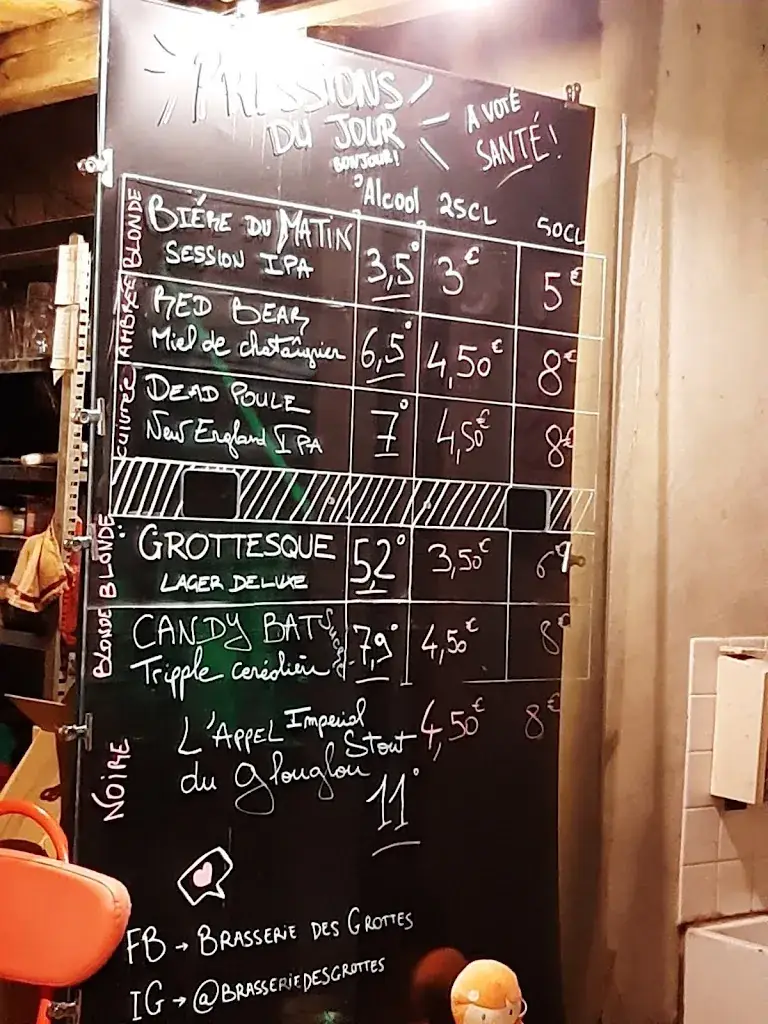 PRESSIONS
DU JOUR
BONJOUR!
A VOTE
SANTÉ!
°Alcool 25CL 50CL
BLONDE
BIÉRE DU MATIN
SESSION IPA
3,5° 3€ 5€
AMBRÉE
RED BEAR
Miel de chataîgnier
6,5° 4,50€ 8€
cuivrée
DEAD POULE
New England IPA
7° 4,50€ 8€
BLONDE
GROTTESQUE
LAGER DELUXE
5,2° 3,50€ 6€
BLONDE
CANDY BAT
Tripple ceréaliere
7,9° 4,50€ 8€
NOIRE
L'APPEL Imperial
Stout
du glouglou
11° 4,50€ 8€
FB → BRASSERIE DES GROTTES
IG → @BRASSERIEDESGROTTES